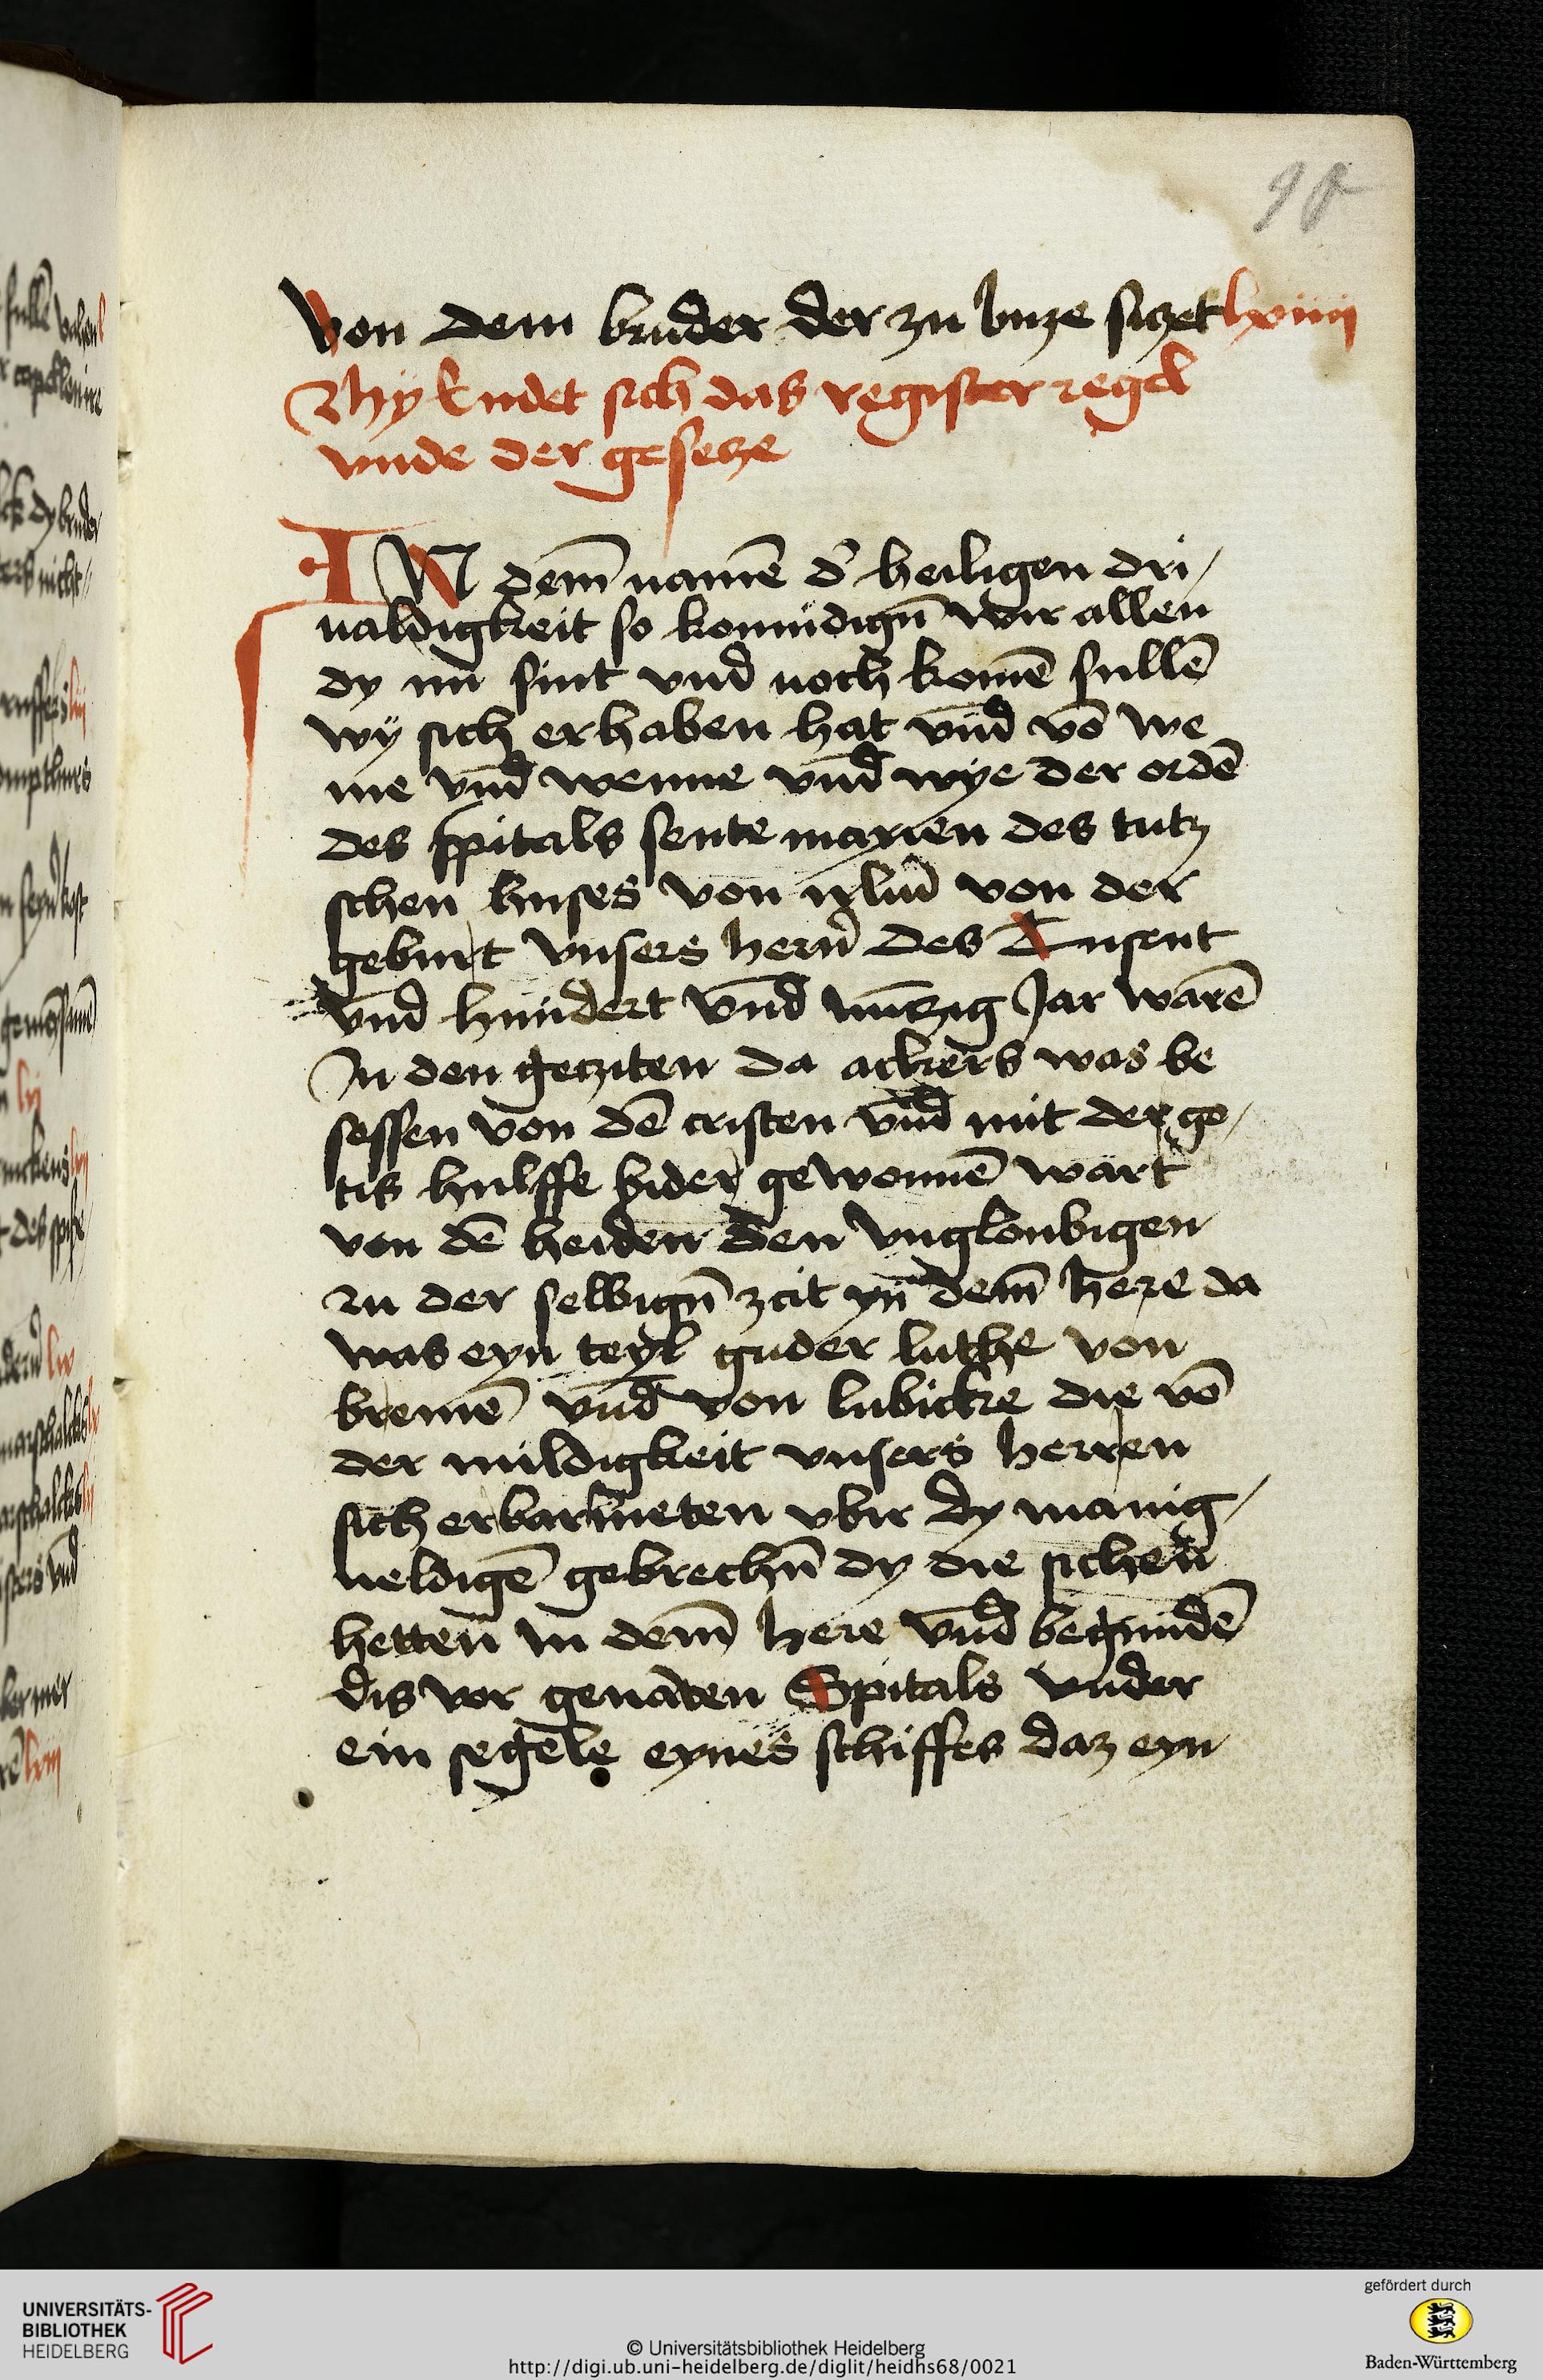 von dem bruder der zu buze siczet lxiiii
Hy endet sich das register regel
vnde der gesetze
IN dem̄ namē d' heiligen dri
ualdigkeit so komīdign̄ wir allen
dy nu sint vnd noch komē sullē
wy sich erhaben hat vnd vō we
me vnd wenne vnd wye der ordē
des spitals sente marien des tutz
schen huses von von der
geburt vnsers hern̄ des Tusent
vnd hundert vnd nūtzig Jar warē
In den gecziten da ackers was be
sessen von dē cristen vnd mit der go
tis hulffe wider gewonnē wart
von dē heiden den vngloubigen
zu der selbign̄ zcit yn̄ dem̄ here da
was eyn teyl guder luthe von
bremē vnd von lubicke die vō
der mildigkeit vnsers herren
sich erbarmeten vbir dy manig
ueldigē gebrechn̄ dy die sichen
hetten in dem̄ here vnd begundē
dis vor genāten Spitals vnder
ein segele eynes schiffes daz eyn
UNIVERSITÄTS-
BIBLIOTHEK
HEIDELBERG
© Universitätsbibliothek Heidelberg
http://digi.ub.uni-heidelberg.de/diglit/heidhs68/0021
gefördert durch
Baden-Württemberg